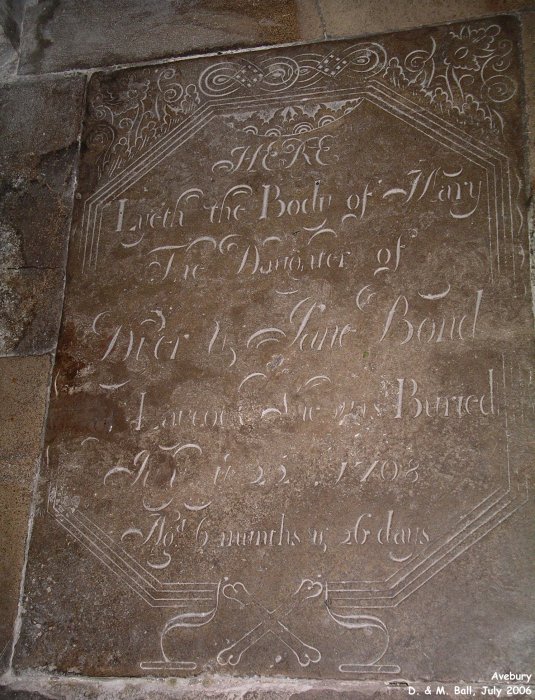 HERE
Lyeth the Body of Mary
The Daughter of
& Jane Bond
She was Buried
22. 1708
Aged 6 munths & 26 days
Avebury
D. & M. Ball, July 2006